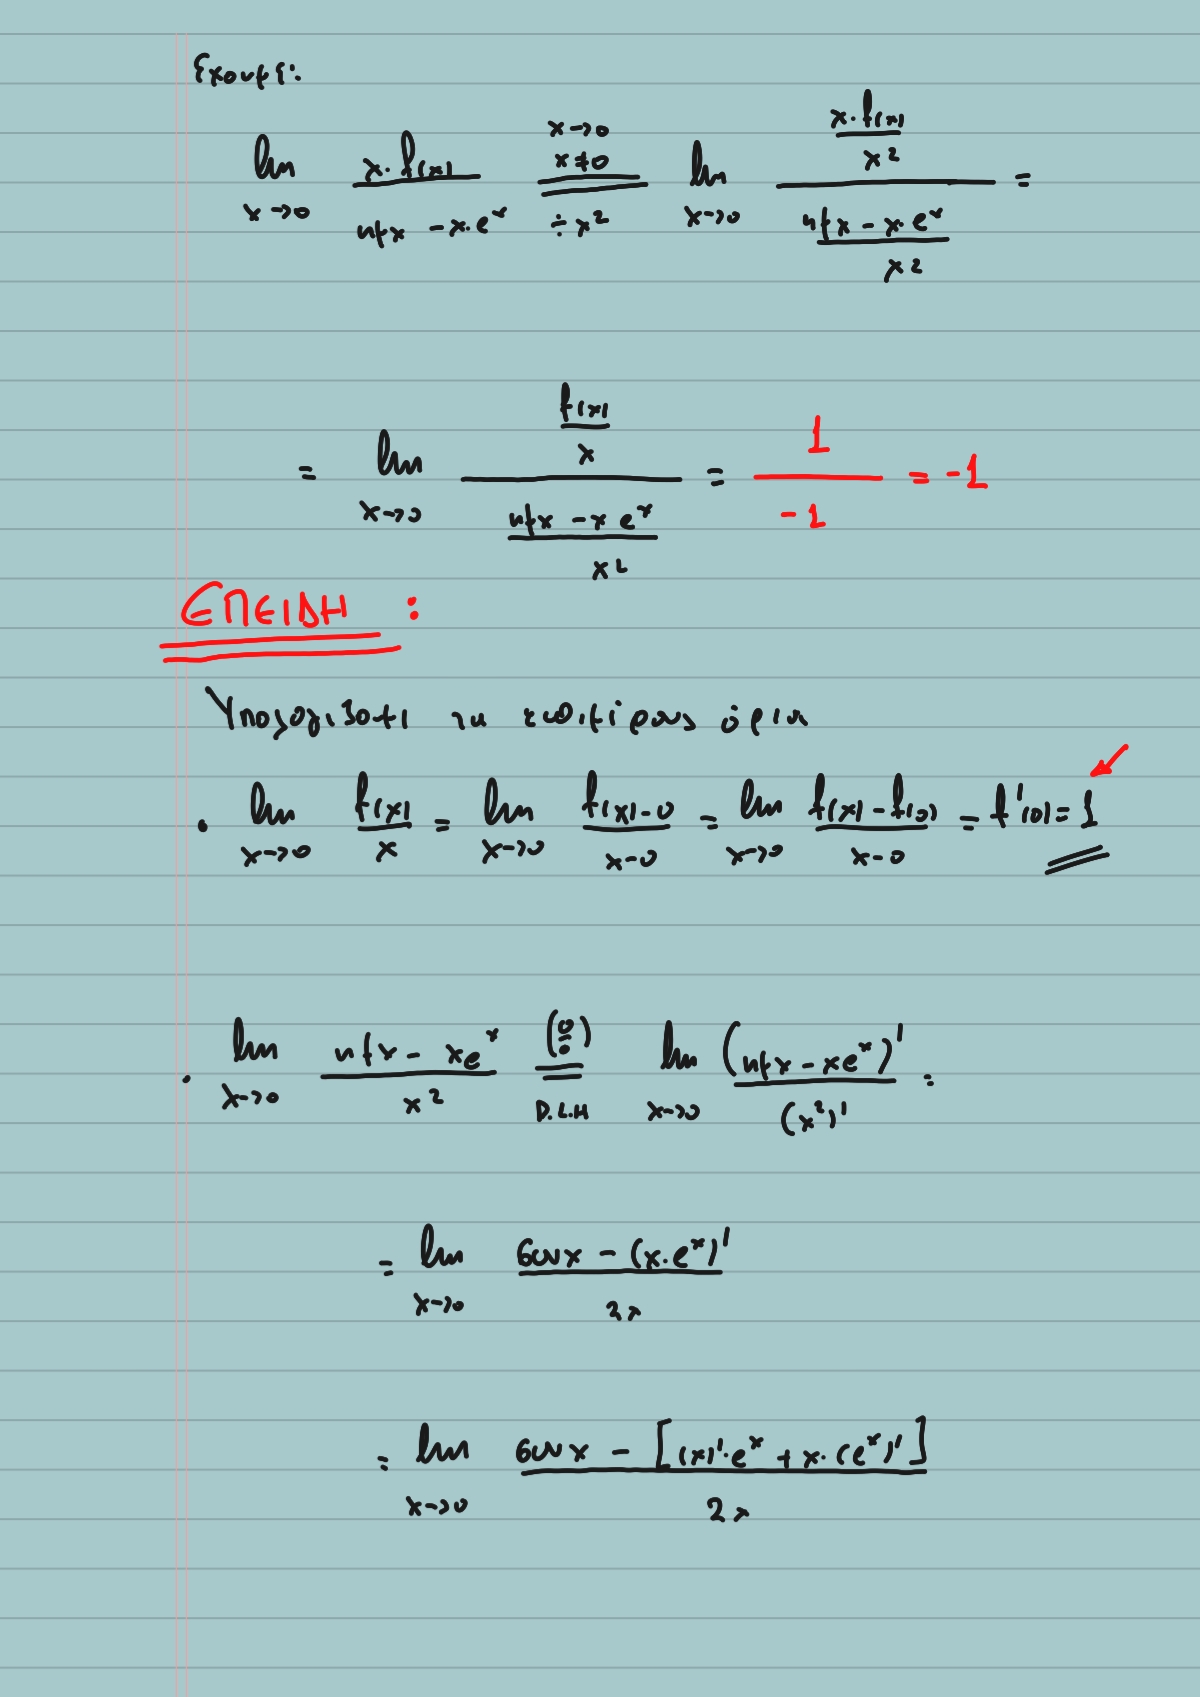 Έχουμε:
lim x→0 x·f(x) / ημx - x·e^x = (x→0, x≠0, ÷x²) lim x→0 (x·f(x) / x²) / (ημx - x·e^x / x²) =
= lim x→0 (f(x) / x) / (ημx - x e^x / x²) = 1 / -1 = -1
ΕΠΕΙΔΗ :
Υπολογίζουμε τα επιμέρους όρια
• lim x→0 f(x) / x = lim x→0 f(x) - 0 / x - 0 = lim x→0 f(x) - f(0) / x - 0 = f'(0) = 1
• lim x→0 ημx - xe^x / x² = (0/0) D.L.H lim x→0 (ημx - xe^x)' / (x²)' =
= lim x→0 συνx - (x·e^x)' / 2x
= lim x→0 συνx - [(x)'·e^x + x·(e^x)'] / 2x